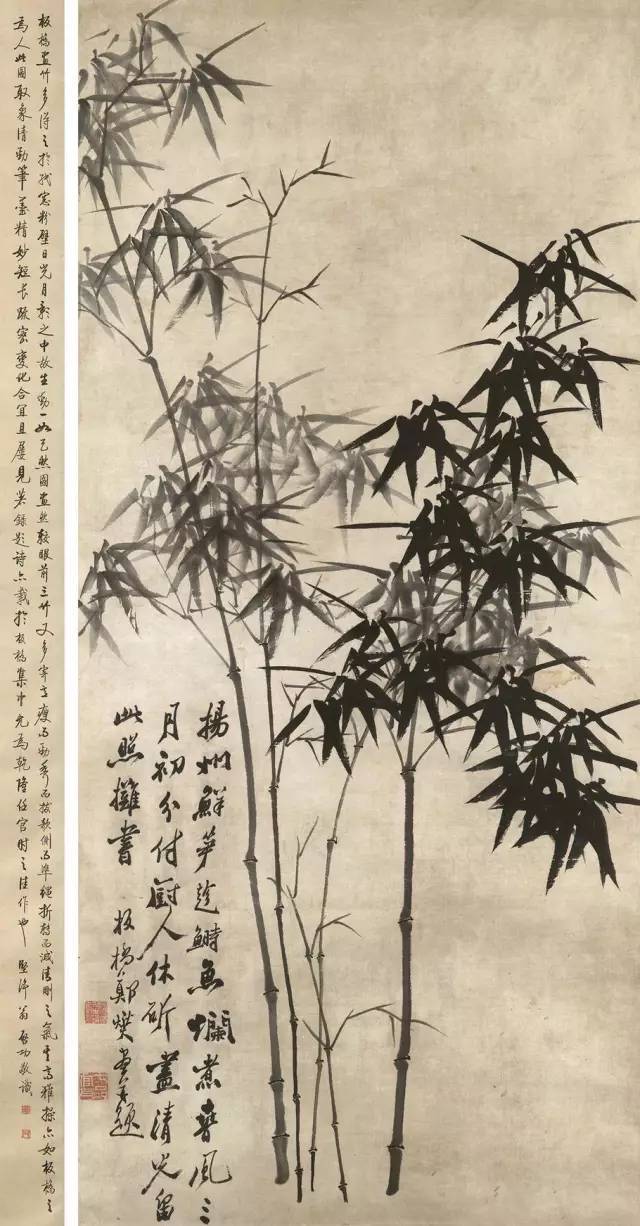 揚州鮮笋趁鰣魚爛煮春風三
月初分付厨人休斫盡清光留
此照攤書 板橋鄭燮畫并題
板橋畫竹多得之於紙窗粉壁日光月影之中故生動一如圖畫然較眼前之竹又多寄高瘦而勁秀而拔欹側而準繩折轉而清剛之氣高雅操亦如板橋之
為人此圖取象清勁筆墨精妙短長疏密變化合宜且屢見著錄題詩亦載於板橋集中尤為乾隆任官時之佳作也 堅淨翁啟功敬識